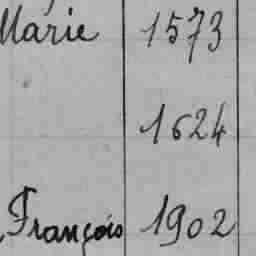 Marie 1573
1624
François 1902